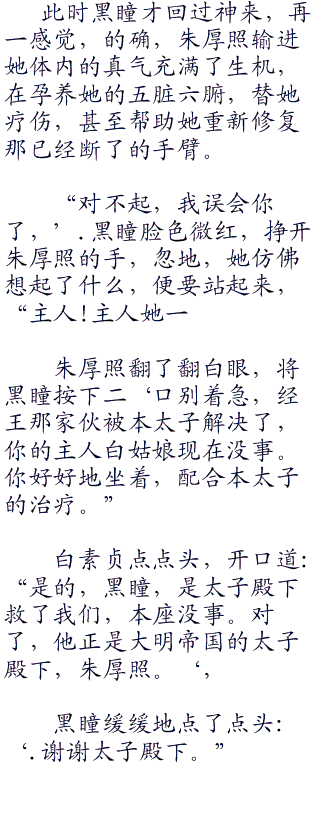 此时黑瞳才回过神来，再
一感觉，的确，朱厚照输进
她体内的真气充满了生机，
在孕养她的五脏六腑，替她
疗伤，甚至帮助她重新修复
那已经断了的手臂。
“对不起，我误会你
了，’.黑瞳脸色微红，挣开
朱厚照的手，忽地，她仿佛
想起了什么，便要站起来，
“主人!主人她一
朱厚照翻了翻白眼，将
黑瞳按下二‘口别着急，经
王那家伙被本太子解决了，
你的主人白姑娘现在没事。
你好好地坐着，配合本太子
的治疗。”
白素贞点点头，开口道:
“是的，黑瞳，是太子殿下
救了我们，本座没事。对
了，他正是大明帝国的太子
殿下，朱厚照。‘，
黑瞳缓缓地点了点头:
‘.谢谢太子殿下。”